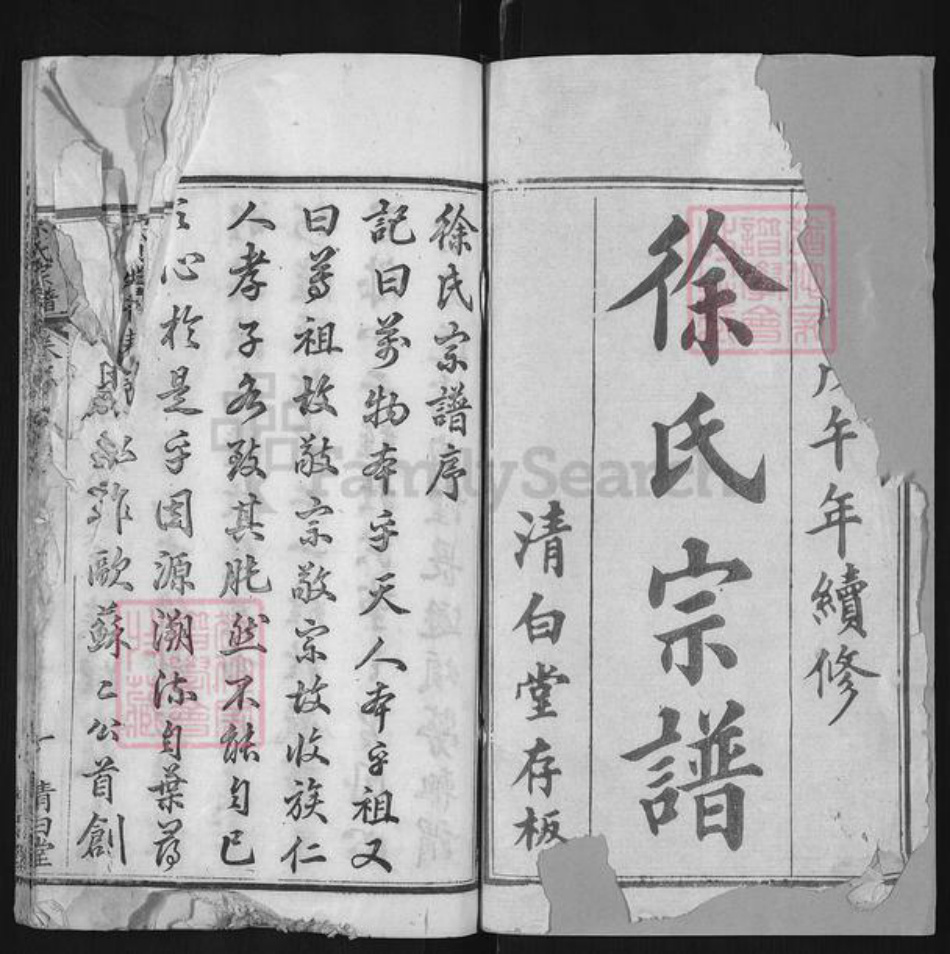 午年續修
徐氏宗譜
清白堂存板
徐氏宗譜序
記曰萬物本乎天人本乎祖又
曰尊祖故敬宗敬宗故收族仁
人孝子各致其胐然不能自已
之心於是乎因源溯流自葉尋
歐蘇二公首創
清白堂
FamilySearch